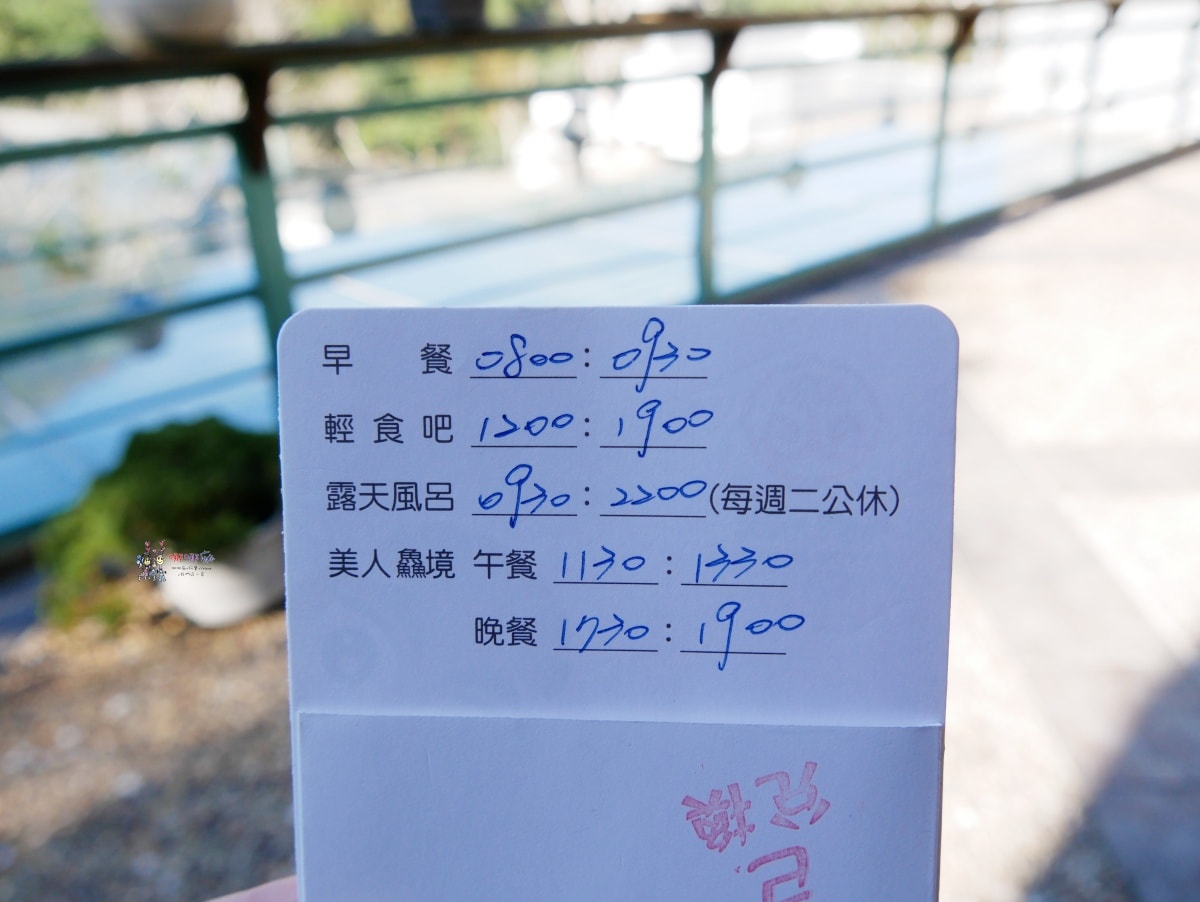 早餐 0800 : 0930
輕食吧 1200 : 1900
露天風呂 0930 : 2200 (每週二公休)
美人鱻境 午餐 1130 : 1330
晚餐 1730 : 1900
已兌換